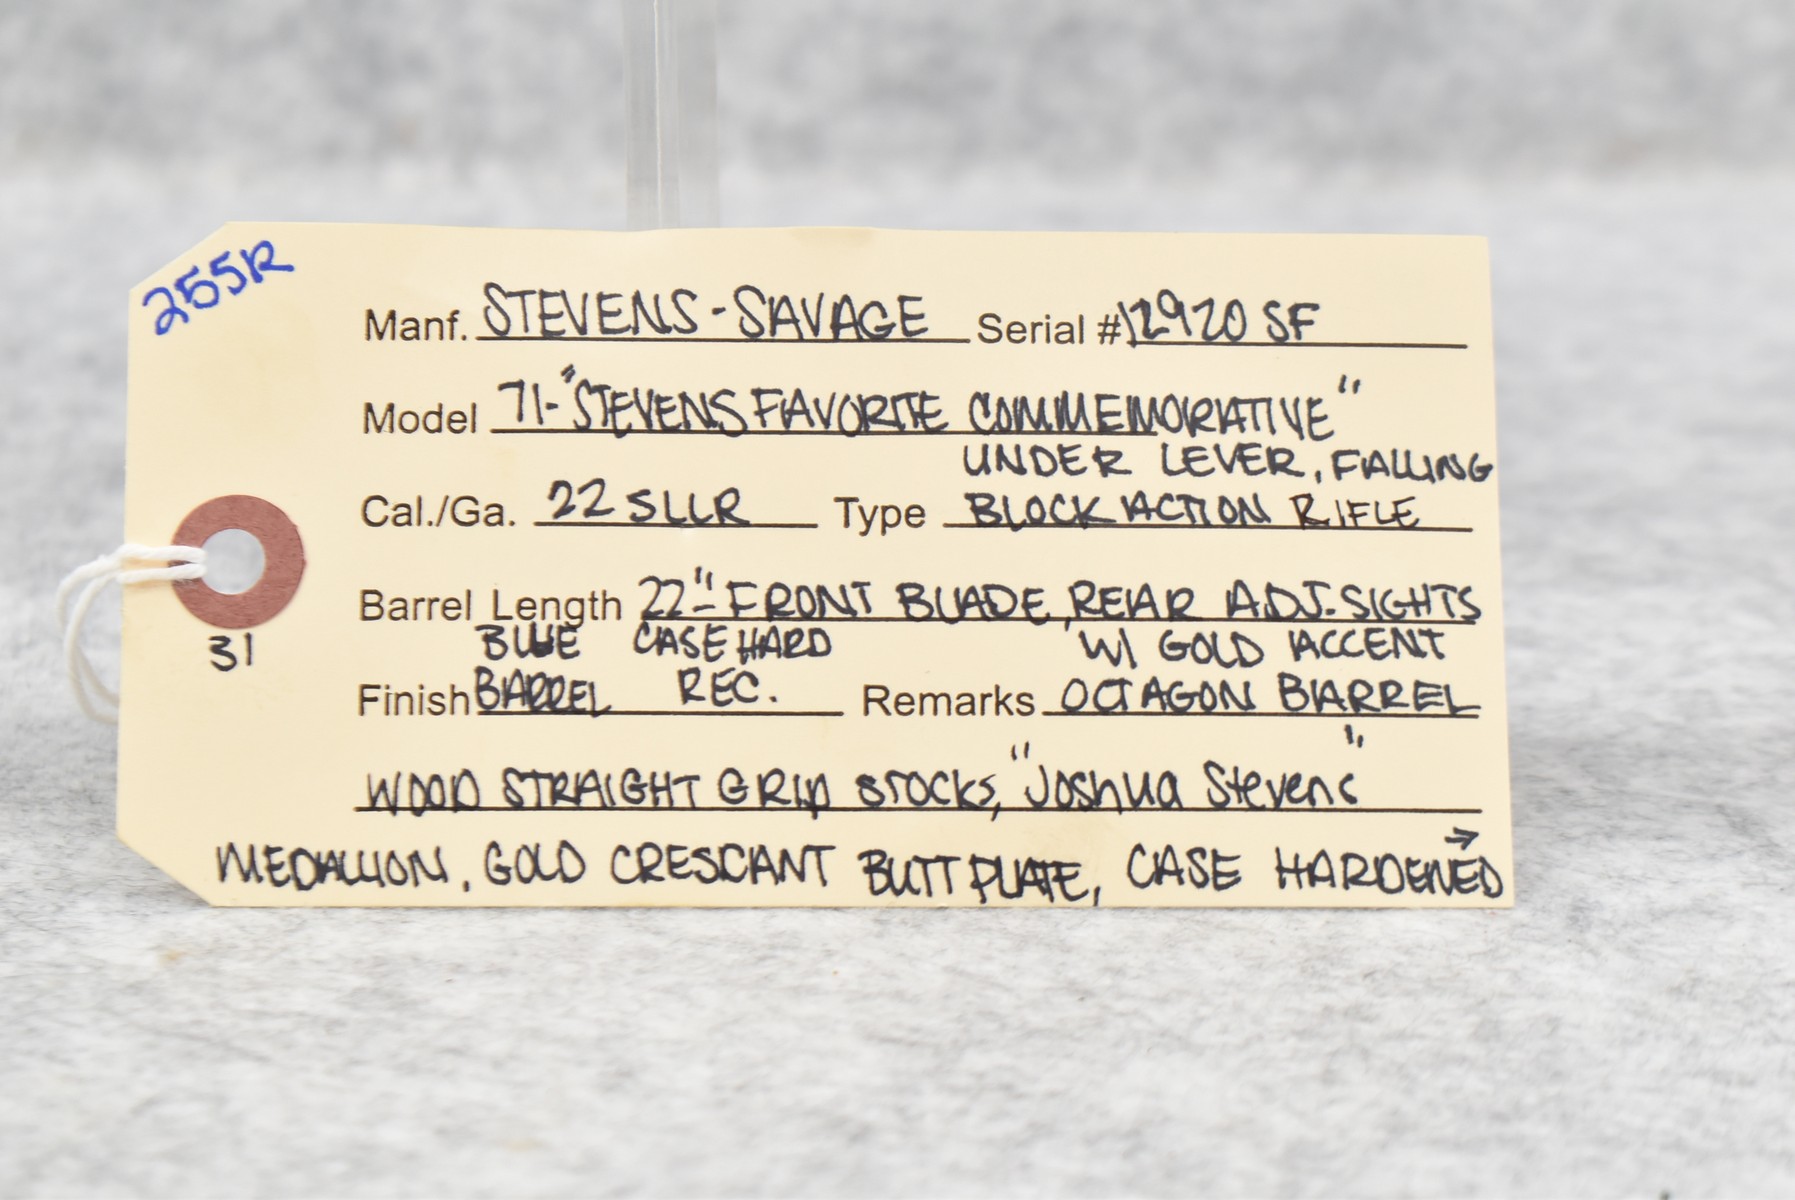 255R
Manf. STEVENS-SAVAGE Serial # 12920 SF
Model 71-"STEVENS FAVORITE COMMEMORATIVE"
UNDER LEVER, FALLING
Cal./Ga. 22 SLLR Type BLOCK ACTION RIFLE
Barrel Length 22"- FRONT BLADE, REAR ADJ. SIGHTS
31 BLUE CASE HARD W/ GOLD ACCENT
Finish BARREL REC. Remarks OCTAGON BARREL
WOOD STRAIGHT GRIP STOCKS, "Joshua Stevens"
MEDALLION, GOLD CRESCANT BUTT PLATE, CASE HARDENED →